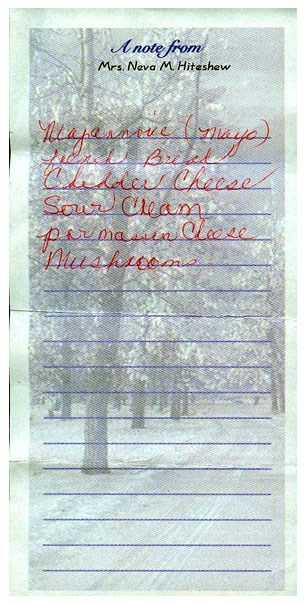 A note from
Mrs. Neva M. Hiteshew
Majannoic (Mayo)
french Bread
Chedder Cheese
Sour Cream
parmassin Cheese
Mushrooms